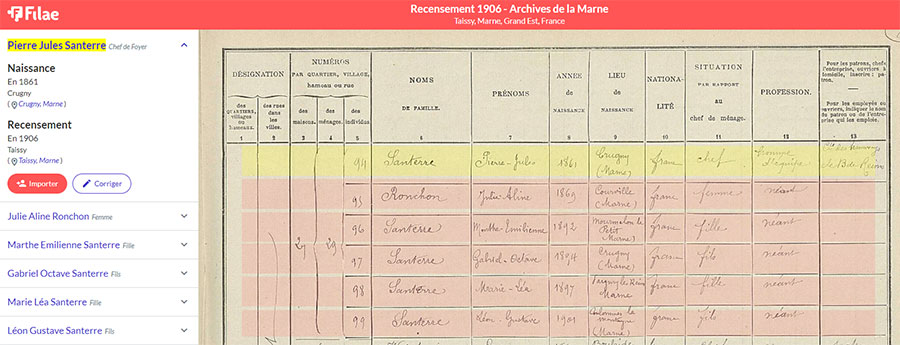 Filae
Recensement 1906 - Archives de la Marne
Taissy, Marne, Grand Est, France
Pierre Jules Santerre Chef de Foyer
Naissance
En 1861
Crugny
( Crugny, Marne )
Recensement
En 1906
Taissy
( Taissy, Marne )
Importer
Corriger
Julie Aline Ronchon Femme
Marthe Emilienne Santerre Fille
Gabriel Octave Santerre Fils
Marie Léa Santerre Fille
Léon Gustave Santerre Fils
DÉSIGNATION
des QUARTIERS, villages ou hameaux.
des rues dans les villes.
NUMÉROS
PAR QUARTIER, VILLAGE,
hameau ou rue
des maisons.
des ménages.
des individus
NOMS
DE FAMILLE.
PRÉNOMS
ANNÉE
de
NAISSANCE
LIEU
de
NAISSANCE
NATIONA-
LITÉ
SITUATION
PAR RAPPORT
au
chef de ménage.
PROFESSION.
Pour les patrons, chefs
d'entreprise, ouvriers à
domicile, inscrire : pa-
tron.
Pour les employés ou
ouvriers, indiquer le nom
du patron ou de l'entre-
prise qui les emploie.
1 2 3 4 5 6 7 8 9 10 11 12 13
94 Santerre Pierre-Jules 1861 Crugny (Marne) franc chef homme d'équipe
95 Ronchon Julie Aline 1869 Courville (Marne) franc femme néant
27 29
96 Santerre Marthe Emilienne 1892 Mourmelon le Petit Marne) franc fille néant
97 Santerre Gabriel-Octave 1894 Crugny (Marne) franc fils néant
98 Santerre Marie-Léa 1897 Marne franc fille néant
99 Santerre Léon-Gustave 1901 (Marne) franc fils néant